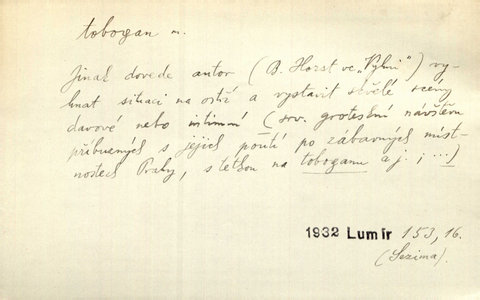 tobogan m.
Jinak dovede autor (B. Horst ve „Vlhní") vy-
hnat situaci na ostří a vystavit skvělé scény
davové nebo intimní (srv. groteskní návštěvu
příbuzných s jejich poutí po zábavných míst-
nostech Prahy, s letbou na toboganu a j. ; ...)
1932 Lumír 153, 16.
(Sezima).